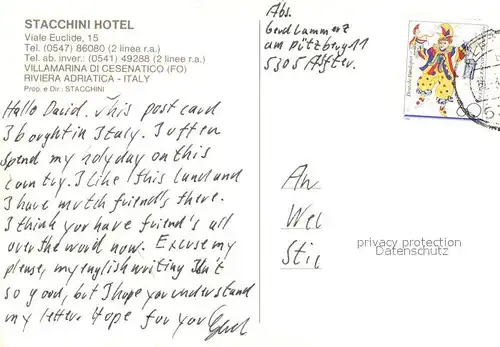 STACCHINI HOTEL
Viale Euclide, 15
Tel. (0547) 86080 (2 linee r.a.)
Tel. ab. inver.: (0541) 49288 (2 linee r.a.)
VILLAMARINA DI CESENATICO (FO)
RIVIERA ADRIATICA - ITALY
Prop. e Dir.: STACCHINI
Hallo David. This post card
I bought in Italy. I often
spend my holyday on this
country. I like this land and
I have mutch friend's there.
I think you have friend's all
over the word now. Excuse my
please, my english writing isn't
so good, but I hope you understand
my letter. Hope for you Gerd
Abs.
Gerd Lammerz
am Pützberg 11
5305 Alfter.
An
Wel
Stil
privacy protection
Datenschutz
60